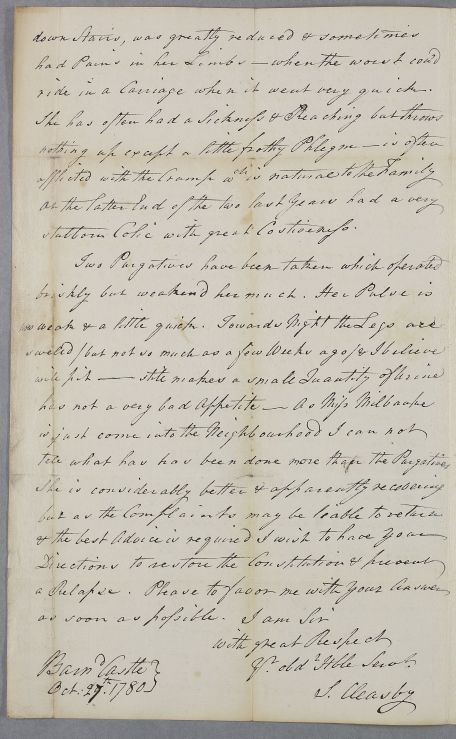 down Stairs, was greatly reduced & sometimes
had Pains in her Limbs — when the worst could
ride in a Carriage when it went very quick.
She has often had a Sickness & Reaching but throws
nothing up except a little frothy Phlegm — is often
afflicted with the Cramp wch is natural to the Family
At the latter End of the two last Years had a very
stubborn Colic with great Costiveness.
Two Purgatives have been taken which operated
briskly but weakend her much. Her Pulse is
weak & a little quick. Towards Night the Legs are
swell'd (but not so much as a few Weeks ago) & I believe
will pit — She makes a small Quantity of Urine
has not a very bad Appetite — As Miss Milbanke
is just come into the Neighbourhood I can not
tell what has has been done more than the Purgatives
She is considerably better & apparently recovering
but as the Complaints may be liable to return
& the best Advice is required I wish to have your
Directions to restore the Constitution & prevent
a Relapse. Please to favor me with Your Answer
as soon as possible. I am Sir
with great Respect
Yr. obdt. Hble Servt.
Barnd Castle
Oct. 27th. 1780
S. Cleasby